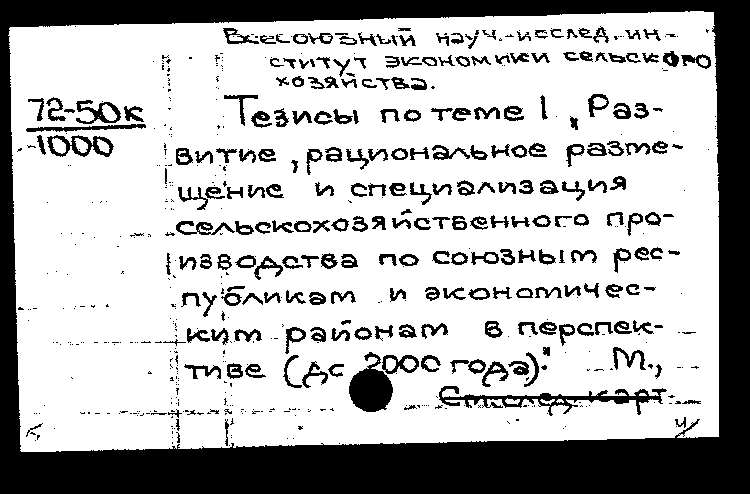 Всесоюзный науч.-исслед. ин-
ститут экономики сельского
хозяйства.
72-50к
1000
Тезисы по теме 1 „Раз-
витие, рациональное разме-
щение и специализация
сельскохозяйственного про-
изводства по союзным рес-
публикам и экономичес-
ким районам в перспек-
тиве (до 2000 года)." М.,
См.след.карт.